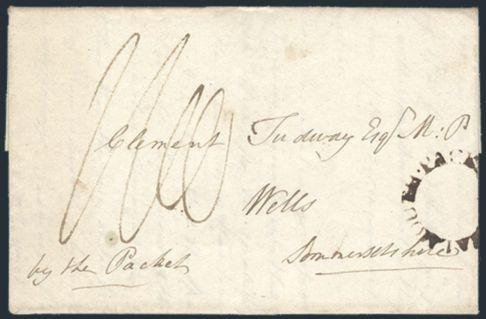 Clement Tudway Esqr M:P
Wells
Sommersetshire
by the Packet